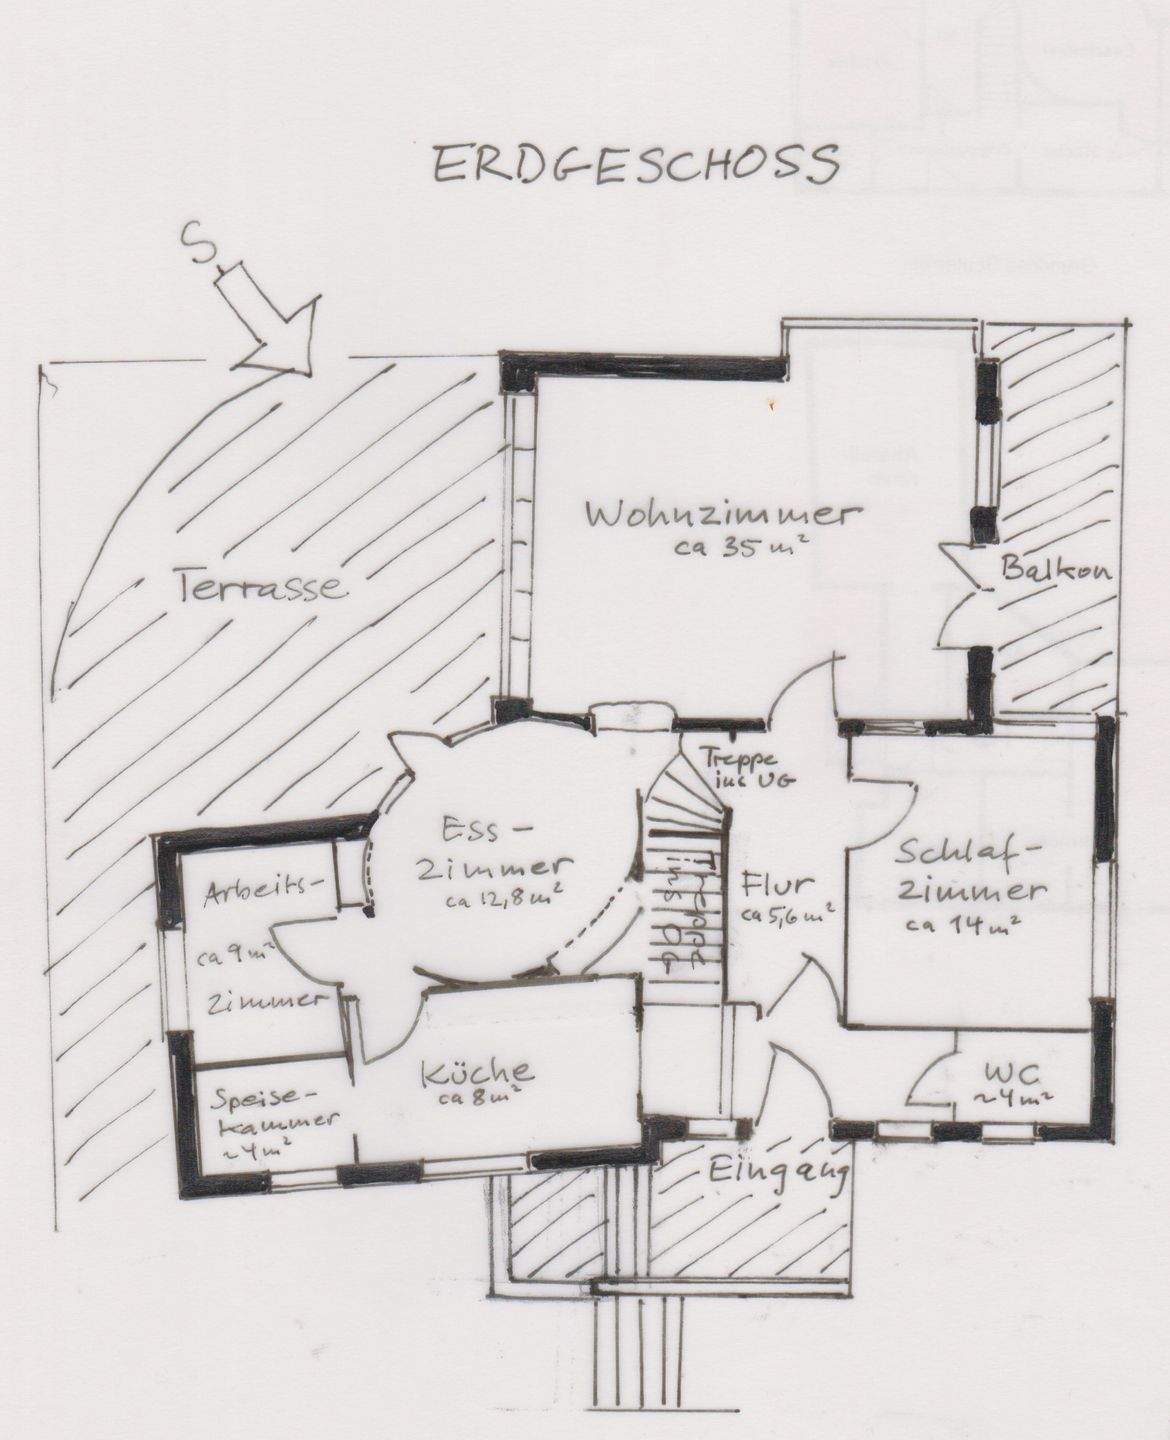 ERDGESCHOSS
S
Wohnzimmer
ca 35 m²
Balkon
Terrasse
Treppe
ins UG
Ess-
zimmer
ca 12,8 m²
Treppe
ins
OG
Flur
ca 5,6 m²
Schlaf-
zimmer
ca 14 m²
Arbeits-
ca 9 m²
zimmer
Küche
ca 8 m²
Speise-
kammer
~4 m²
WC
~4 m²
Eingang